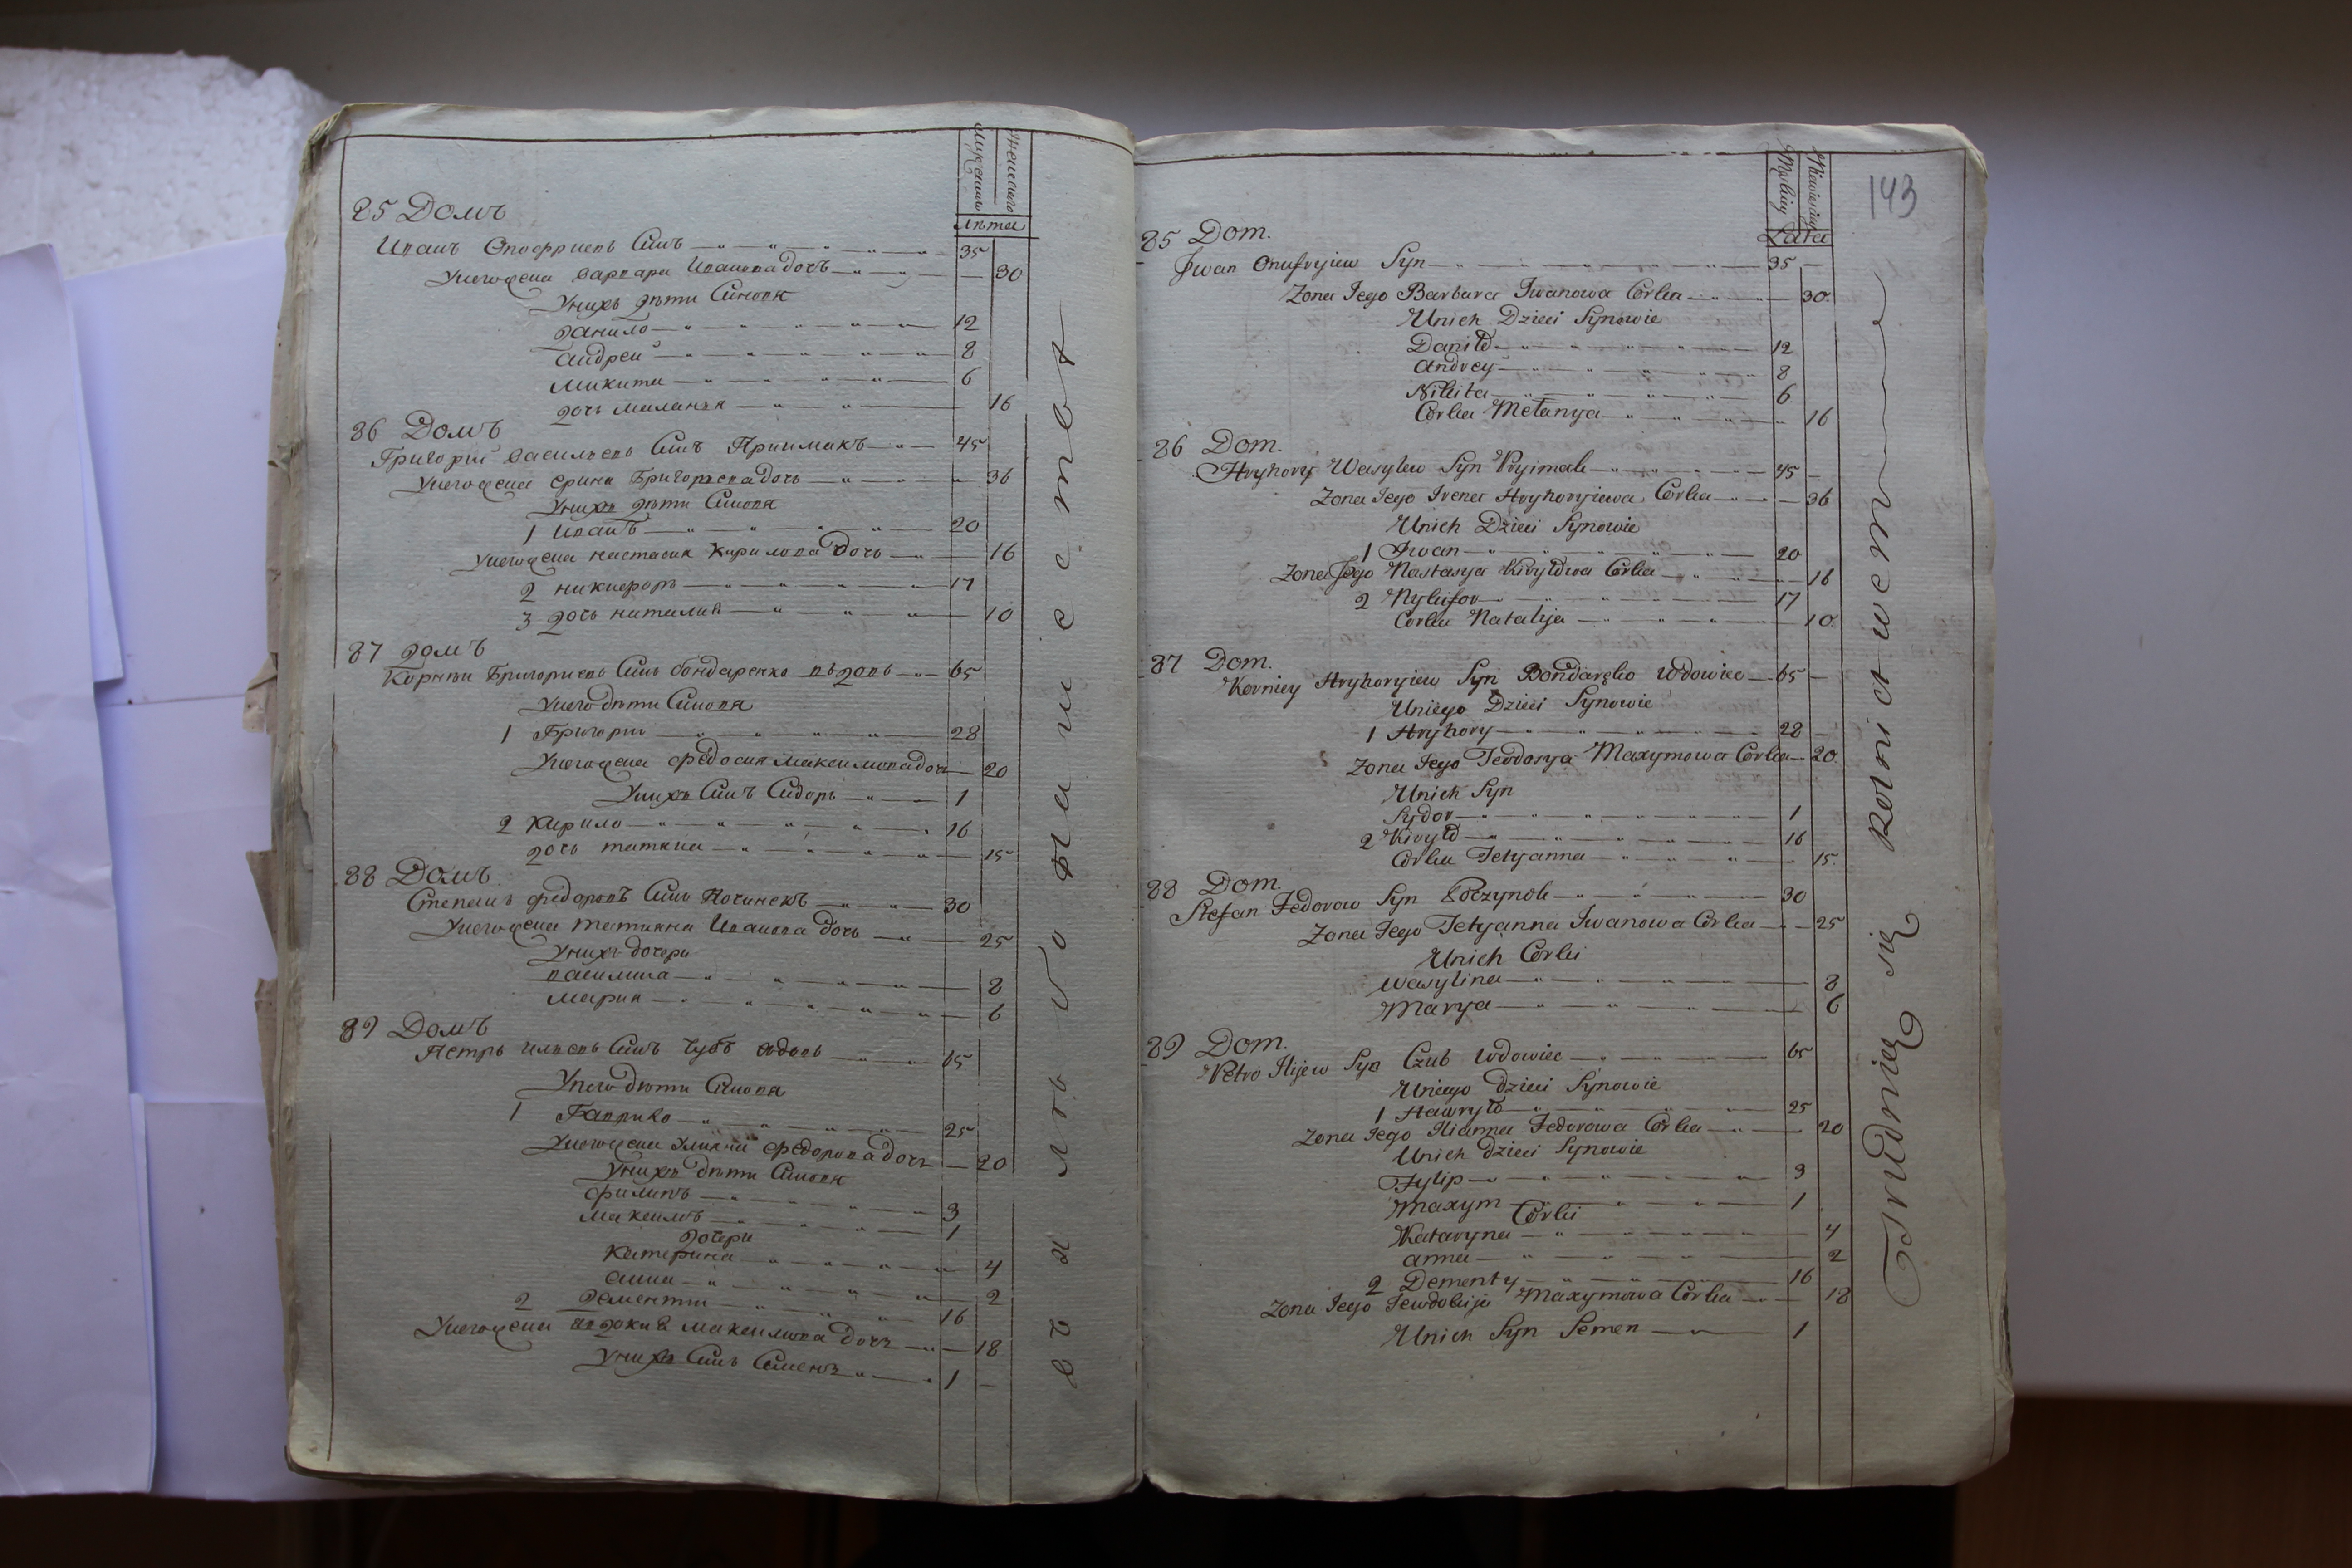 Мужска
Женска
Лѣта
85 Домъ
Иванъ Онофриевъ Синъ 35
Унегожена варвара Иванова дочъ 30
Унихъ дѣти Синовя
данило 12
андреи 8
микита 6
дочь маланья 16
86 Домъ
Григорий васильевъ Синъ Приимакъ 45
Унегожена єрина Григориева дочь 36
Унихъ дѣти Синовя
1 Иванъ 20
Унегожена настасия кирилова дочь 16
2 никифоръ 17
3 дочь наталия 10
87 домъ
Корнѣи Григориевъ Синъ бондаренко вдовъ 65
Унего дѣти Синовя
1 Григории 28
Унегожена федосия максимова дочь 20
Унихъ Синъ Сидоръ 1
2 Кирило 16
дочь татяна 15
88 Домъ
Степанъ федоровъ Синъ Починокъ 30
Унегожена татияна Иванова дочь 25
Унихъ дочери
василина 8
мария 6
89 Домъ
Петръ илиевъ Синъ Чубъ вдовъ 65
Унего дѣти Синовя
1 Гаврило 25
Унегожена улияна федорова дочъ 20
Унихъ дѣти Синовя
филипъ 3
максимъ 1
дочери
катерина 4
анна 2
2 дементии 16
Унегожена явдокия максимова дочъ 18
Унихъ Синъ Семенъ 1
143
Męskiey
Niewieściey
Lata
85 Dom.
Jwan Onufryiew Syn 35
Zona Jego Barbara Jwanowa Corka 30
Unich Dzieci Synowie
Daniło 12
Andrey 8
Nikita 6
Corka Mełanya 16
86 Dom.
Hryhory Wasylew Syn Pryimak 45
Zona Jego Irena Hryhoryiewa Corka 36
Unich Dzieci Synowie
1 Jwan 20
Zona Jego Nastasya Kiryłowa Corka 16
2 Nykifor 17
Corka Natalija 10
87 Dom.
Korniey Hryhoryiew Syn Bondaręko Wdowiec 65
Uniego Dzieci Synowie
1 Hryhory 28
Zona Jego Teodosya Maxymowa Corka 20
Unich Syn
Sydor 1
2 Kiryło 16
Corka Tetyanna 15
88 Dom.
Stefan Fedorow Syn Poczynok 30
Zona Jego Tetyanna Jwanowa Corka 25
Unich Corki
Wasylina 8
Marya 6
89 Dom.
Petro Ilijew Syn Czub Wdowiec 65
Uniego dzieci Synowie
1 Hawryło 25
Zona Jego Ulianna Fedorowa Corka 20
Unich dzieci Synowie
Fylip 3
Maxym 1
Corki
Kataryna 4
anna 2
2 Dementy 16
Zona Jego Jewdokija Maxymowa Corka 18
Unich Syn Semen 1
Trudnieą się Rolnictwem